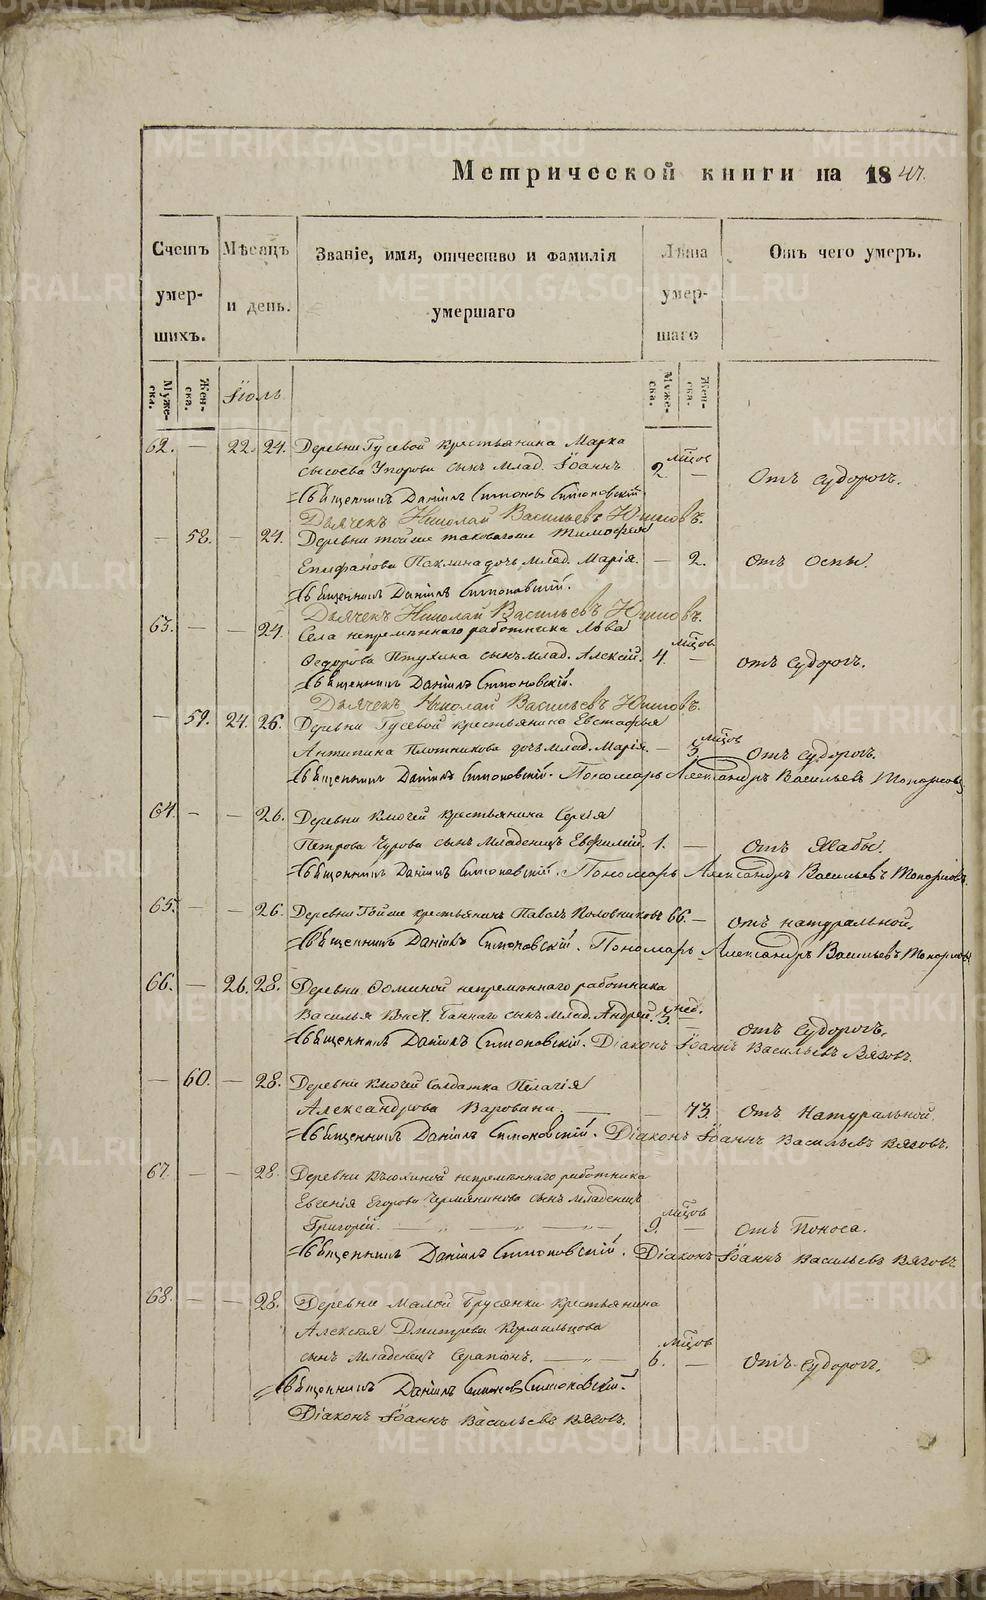 METRIKI.GASO-URAL.RU
Метрической книги на 1847.
Счетъ умер- шихъ.
Мѣсяцъ и день.
Званіе, имя, отчество и фамилія умершаго
Лѣта умер- шаго
Отъ чего умеръ.
Муже- ска.
Жен- ска.
Іюль
Муже- ска.
Жен- ска.
62. — 22. 24. Деревни Гусевой крестьянина Марка
Сысоева Упорова сынъ млад. Іоаннъ 2 мѣцов — Отъ судорогъ.
Священникъ Даніилъ Симоновъ Симоновскій.
Дьячекъ Николай Васильевъ
— 58. — 24. Деревни тойже таковагоже Тимофея
Епифанова дочь млад. Марія. — 2. отъ оспы.
Священникъ Даніилъ Симоновскій.
Дьячекъ Николай Васильевъ
63. — — 24. Села непремѣннаго работника Льва
Федорова Птухина сынъ млад. Алексій. 4. мѣцов — отъ судорогъ.
Священникъ Даніилъ Симоновскій.
Дьячекъ Николай Васильевъ
— 59. 24. 26. Деревни Гусевой крестьянина Евстафья
Антипина Плотникова дочь млад. Марія. — 3. мѣцов Отъ судорогъ.
Священникъ Даніилъ Симоновскій. Пономарь Александръ Васильевъ Топорковъ
64. — — 26. Деревни Ключей крестьянина Сергія
Петрова Чурова сынъ младенецъ Евфимій. 1. — Отъ Жабы.
Священникъ Даніилъ Симоновскій. Пономарь Александръ Васильевъ Топорковъ.
65. — — 26. Деревни Тойже крестьянинъ Павелъ Половниковъ 66. — отъ натуральной.
Священникъ Даніилъ Симоновскій. Пономарь Александръ Васильевъ Топорковъ
66. — 26. 28. Деревни Фоминой непремѣннаго работника
Василья Баннаго сынъ млад. Андрей. 3. нед. — отъ судорогъ.
Священникъ Даніилъ Симоновскій. Діаконъ Іоаннъ Васильевъ Вяговъ.
— 60. — 28. Деревни Ключей солдатка Пелагія
Александрова Варовина. — — 73. Отъ Натуральной.
Священникъ Даніилъ Симоновскій. Діаконъ Іоаннъ Васильевъ Вяговъ.
67. — — 28. Деревни непремѣннаго работника
Евгенія Егорова Чермянинова сынъ младенецъ
Григорій. 9. мѣцов — Отъ Поноса.
Священникъ Даніилъ Симоновскій. Діаконъ Іоаннъ Васильевъ Вяговъ.
68. — — 28. Деревни Малой Брусянки крестьянина
Алексія Дмитрева Кормильцова
сынъ младенецъ Серапіонъ. 6. мѣцов — Отъ судорогъ.
Священникъ Даніилъ Симоновъ Симоновскій.
Діаконъ Іоаннъ Васильевъ Вяговъ.